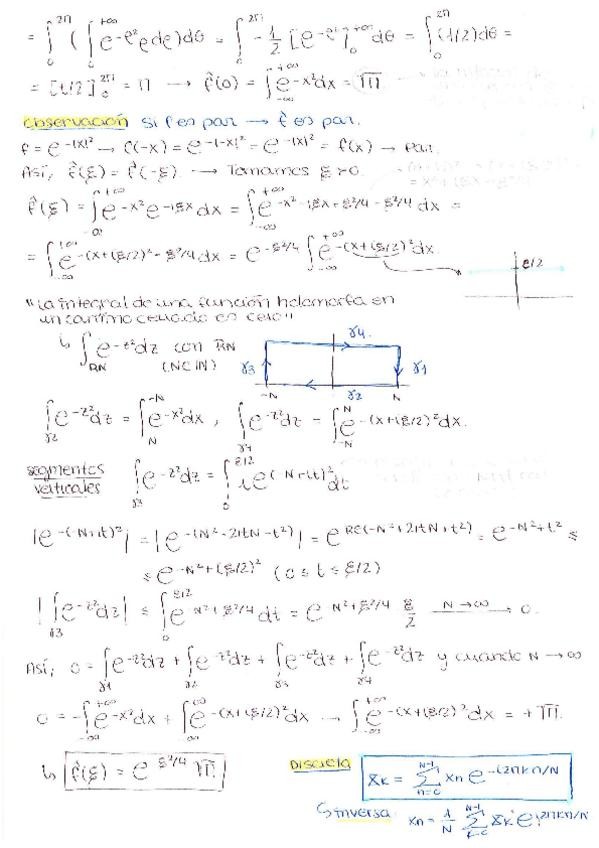 = ∫₀^{2π} ( ∫₀^{+∞} e^{-ρ²} ρ dρ ) dθ = ∫₀^{2π} -1/2 [e^{-ρ²}]₀^{+∞} dθ = ∫₀^{2π} (1/2) dθ =
= [t/2]₀^{2π} = π → f̂(0) = ∫_{-∞}^{+∞} e^{-x²} dx = √π.
Observación Si f es par → f̂ es par.
f = e^{-|x|²} → f(-x) = e^{-|-x|²} = e^{-|x|²} = f(x) → Par.
Así, f̂(ξ) = f̂(-ξ) → Tomamos ξ > 0.
f̂(ξ) = ∫_{-∞}^{+∞} e^{-x²} e^{-iξx} dx = ∫_{-∞}^{+∞} e^{-x² - iξx + ξ²/4 - ξ²/4} dx =
= ∫_{-∞}^{+∞} e^{-(x+iξ/2)² - ξ²/4} dx = e^{-ξ²/4} ∫_{-∞}^{+∞} e^{-(x+iξ/2)²} dx.
ξ/2
"La integral de una función holomorfa en
un camino cerrado es cero"
↳ ∫_{RN} e^{-z²} dz con RN
(N∈ℕ)
γ4.
γ3
γ1
-N γ2 N
∫_{γ2} e^{-z²} dz = ∫_{N}^{-N} e^{-x²} dx , ∫_{γ4} e^{-z²} dz = ∫_{-N}^{N} e^{-(x+iξ/2)²} dx.
segmentos
verticales
∫_{γ3} e^{-z²} dz = ∫₀^{ξ/2} i e^{-(-N+it)²} dt
|e^{-(-N+it)²}| = |e^{-(N²-2itN-t²)}| = e^{Re(-N²+2itN+t²)} = e^{-N²+t²} ≤
≤ e^{-N²+(ξ/2)²} (0 ≤ t ≤ ξ/2)
|∫_{γ3} e^{-z²} dz| ≤ ∫₀^{ξ/2} e^{-N²+ξ²/4} dt = e^{-N²+ξ²/4} ξ/2 N→∞ → 0.
Así, 0 = ∫_{γ1} e^{-z²} dz + ∫_{γ2} e^{-z²} dz + ∫_{γ3} e^{-z²} dz + ∫_{γ4} e^{-z²} dz y cuando N → ∞
0 = -∫_{-∞}^{+∞} e^{-x²} dx + ∫_{-∞}^{∞} e^{-(x+iξ/2)²} dx → ∫_{-∞}^{+∞} e^{-(x+iξ/2)²} dx = +√π.
↳ f̂(ξ) = e^{-ξ²/4} √π
Discreta
Xk = Σ_{n=0}^{N-1} xn e^{-i2πkn/N}
↳ Inversa xn = 1/N Σ_{k=0}^{N-1} Xk e^{i2πkn/N}